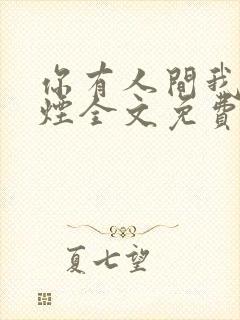 你有人間我
煙全文免費
夏七望